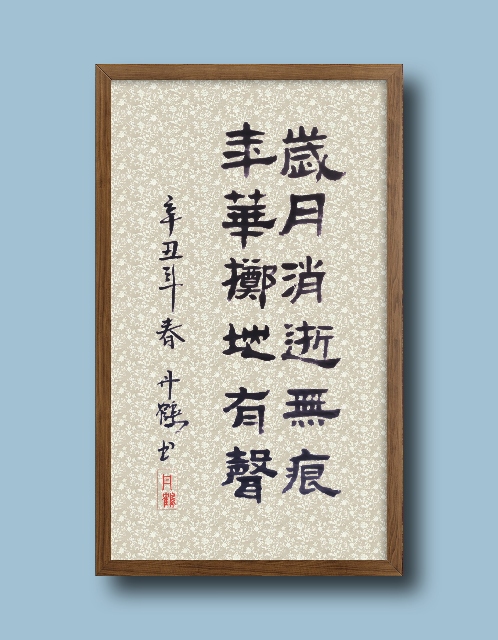 歲月消逝無痕
年華擲地有聲
辛丑年春 丹鶴书
丹鶴